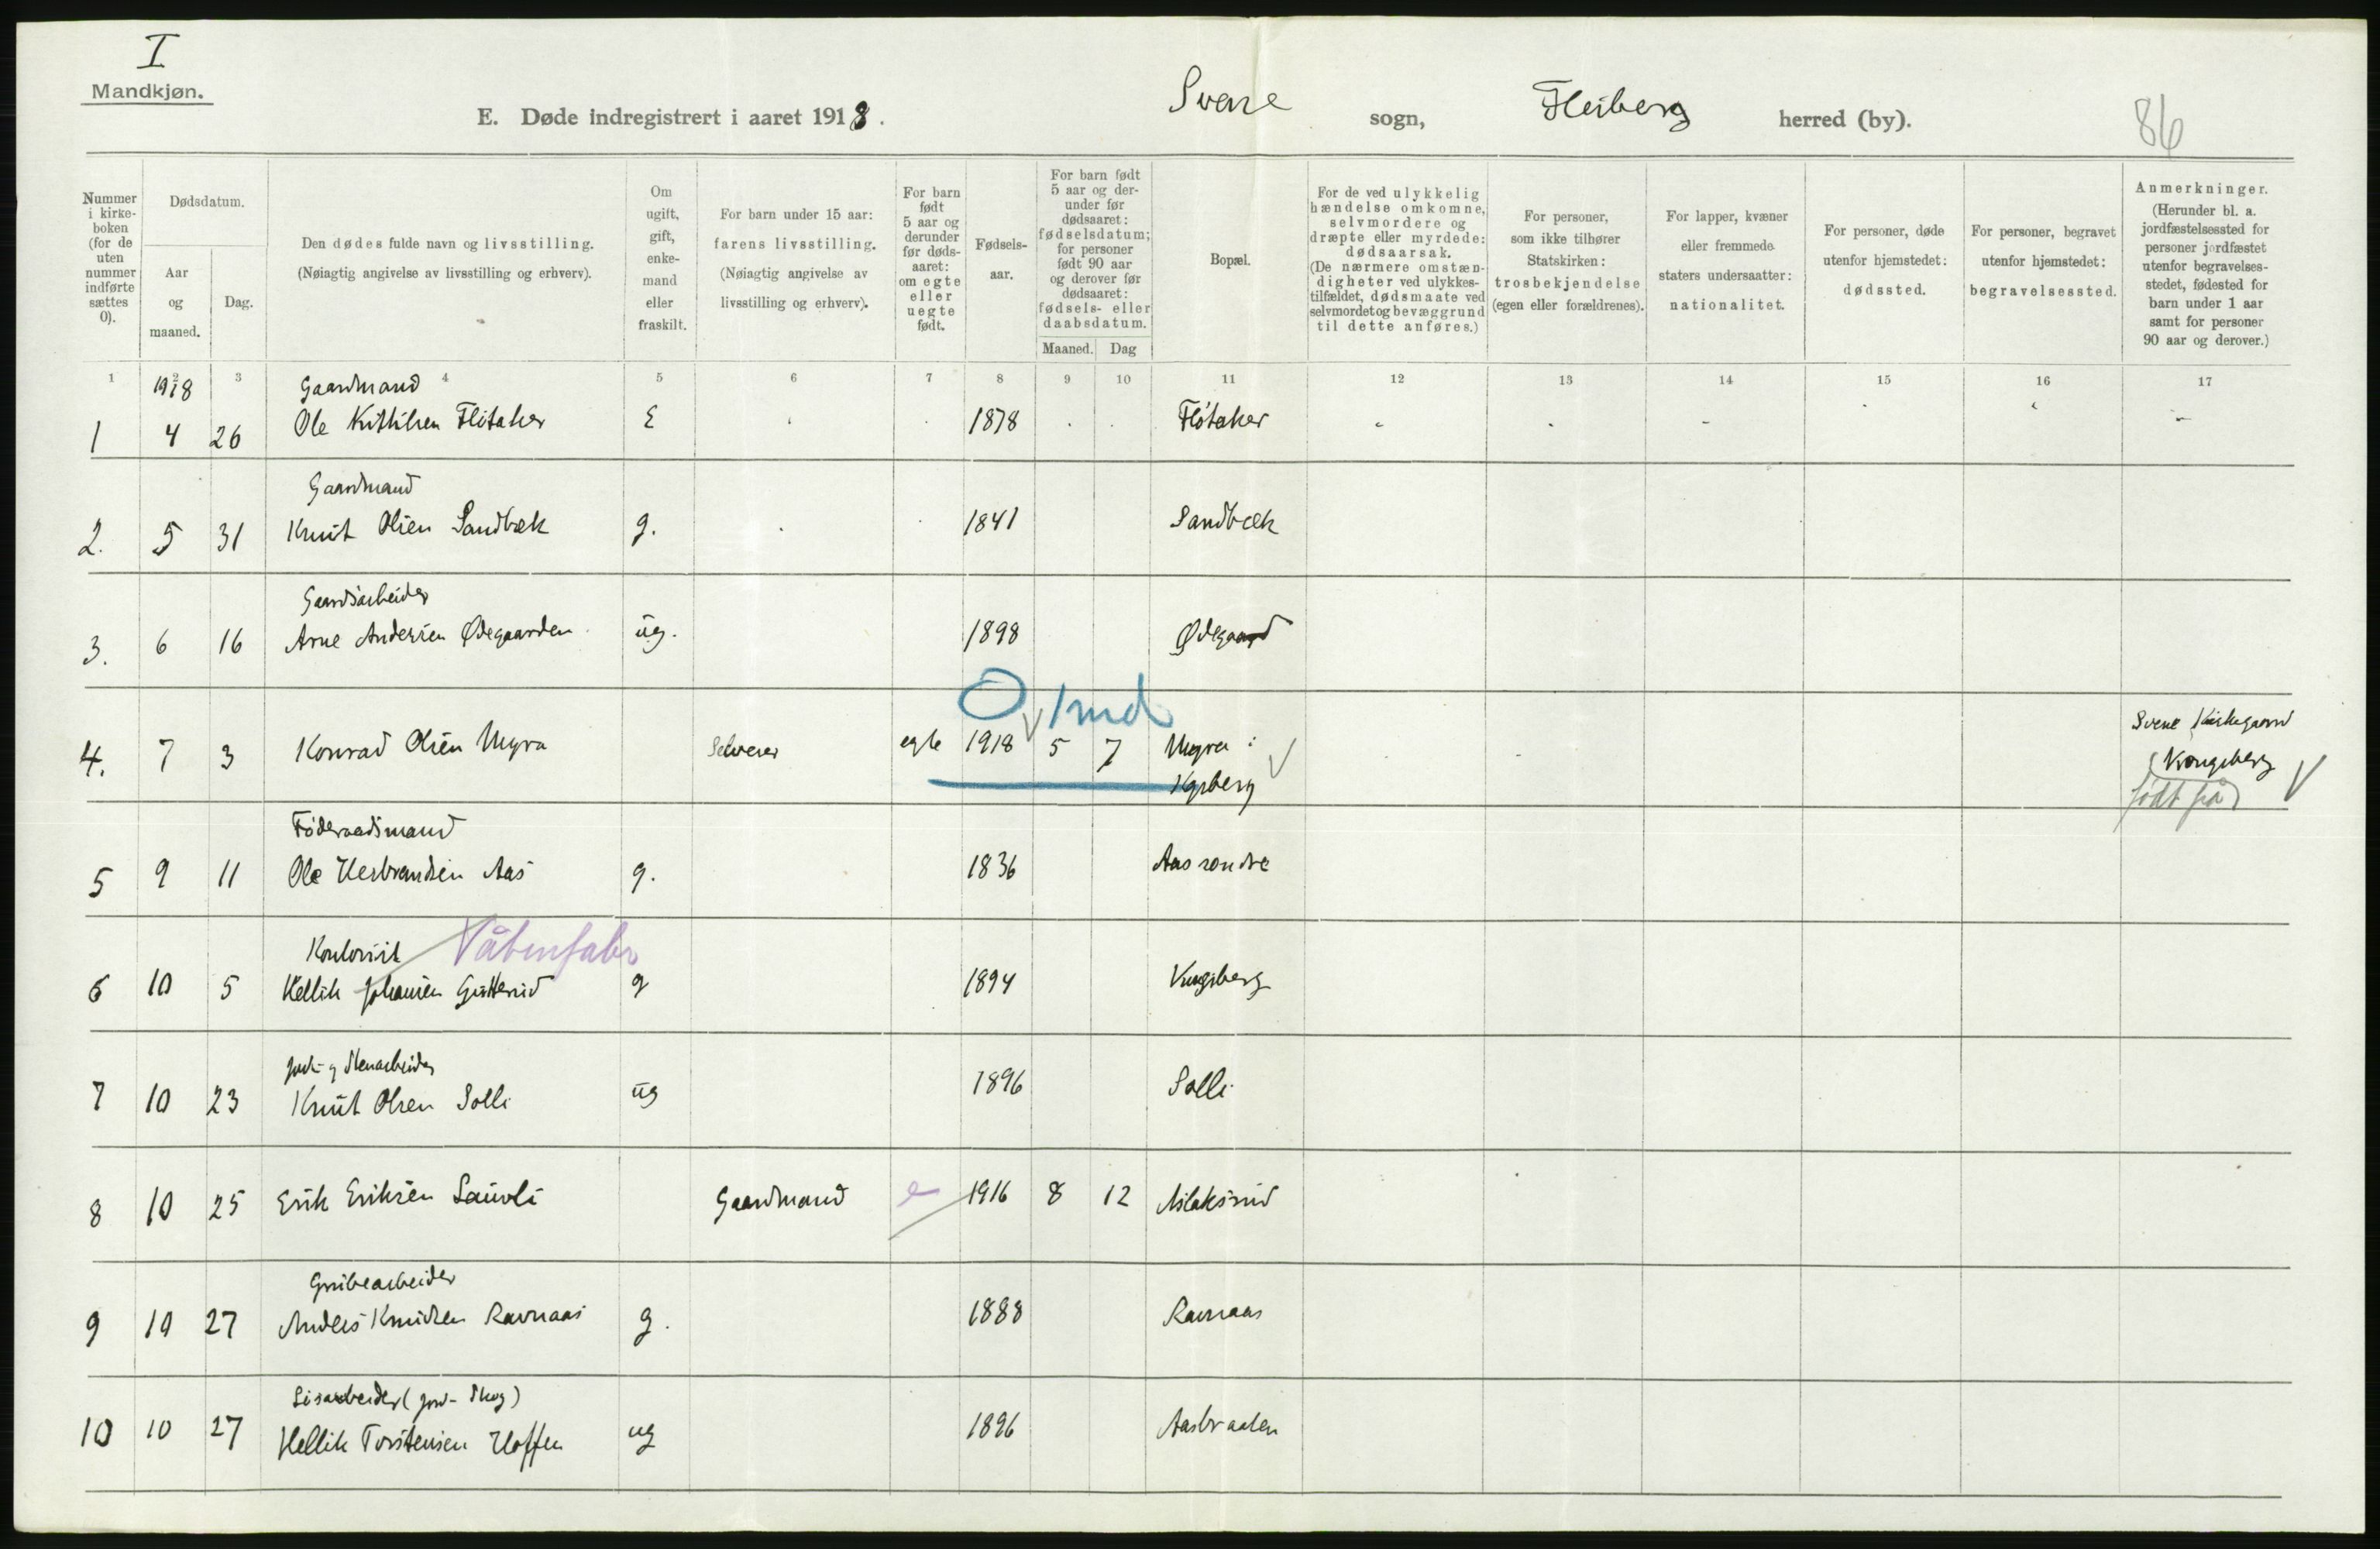 I
Mandkjøn.
E. Døde indregistrert i aaret 1918. Svene sogn, Flesberg herred (by). 86
Nummer i kirkeboken (for de uten nummer indførte sættes 0).
Dødsdatum.
Aar og maaned.
Dag.
Den dødes fulde navn og livsstilling.
(Nøiagtig angivelse av livsstilling og erhverv).
Om ugift, gift, enkemand eller fraskilt.
For barn under 15 aar: farens livsstilling.
(Nøiagtig angivelse av livsstilling og erhverv).
For barn født 5 aar og derunder før dødsaaret: om egte eller uegte født.
Fødselsaar.
For barn født 5 aar og derunder før dødsaaret: fødselsdatum; for personer født 90 aar og derover før dødsaaret: fødsels- eller daabsdatum.
Maaned. Dag
Bopæl.
For de ved ulykkelig hændelse omkomne, selvmordere og dræpte eller myrdede: dødsaarsak.
(De nærmere omstændigheter ved ulykkestilfældet, dødsmaate ved selvmordet og bevæggrund til dette anføres.)
For personer, som ikke tilhører Statskirken: trosbekjendelse (egen eller forældrenes).
For lapper, kvæner eller fremmede staters undersaatter: nationalitet.
For personer, døde utenfor hjemstedet: dødssted.
For personer, begravet utenfor hjemstedet: begravelsessted.
Anmerkninger.
(Herunder bl. a. jordfæstelsessted for personer jordfæstet utenfor begravelsesstedet, fødested for barn under 1 aar samt for personer 90 aar og derover.)
1 2 3 4 5 6 7 8 9 10 11 12 13 14 15 16 17
1918 Gaardmand
1 4 26 Ole Kittilsen Flötaker E 1878 Flötaker
Gaardmand
2. 5 31 Knut Olsen Sandbæk g. 1841 Sandbæk
Gaardsarbeider
3. 6 16 Arne Andersen Ødegaarden ug. 1898 Ødegaard
0 1 md
4. 7 3 Konrad Olsen Myra Selveier egte 1918 5 7 Myra: Kgsberg Svene Kirkegaard
Kongsberg
födt på
Föderaadsmand
5 9 11 Ole Herbrandsen Aas g. 1836 Aas söndre
Kontorist Våbenfabr
6 10 5 Hellik Johansen g 1894 Kongsberg
Jord- og Stenarbeider
7 10 23 Knut Olsen Solli ug 1896 Solli
8 10 25 Erik Eriksen Lauvli Gaardmand e 1916 8 12 Aslaksrud
Grubearbeider
9 10 27 Anders Knudsen Ravnaas g. 1888 Ravnaas
(Jord- Skog)
10 10 27 Hellik Torstensen Hoffen ug 1896 Aasbraaten